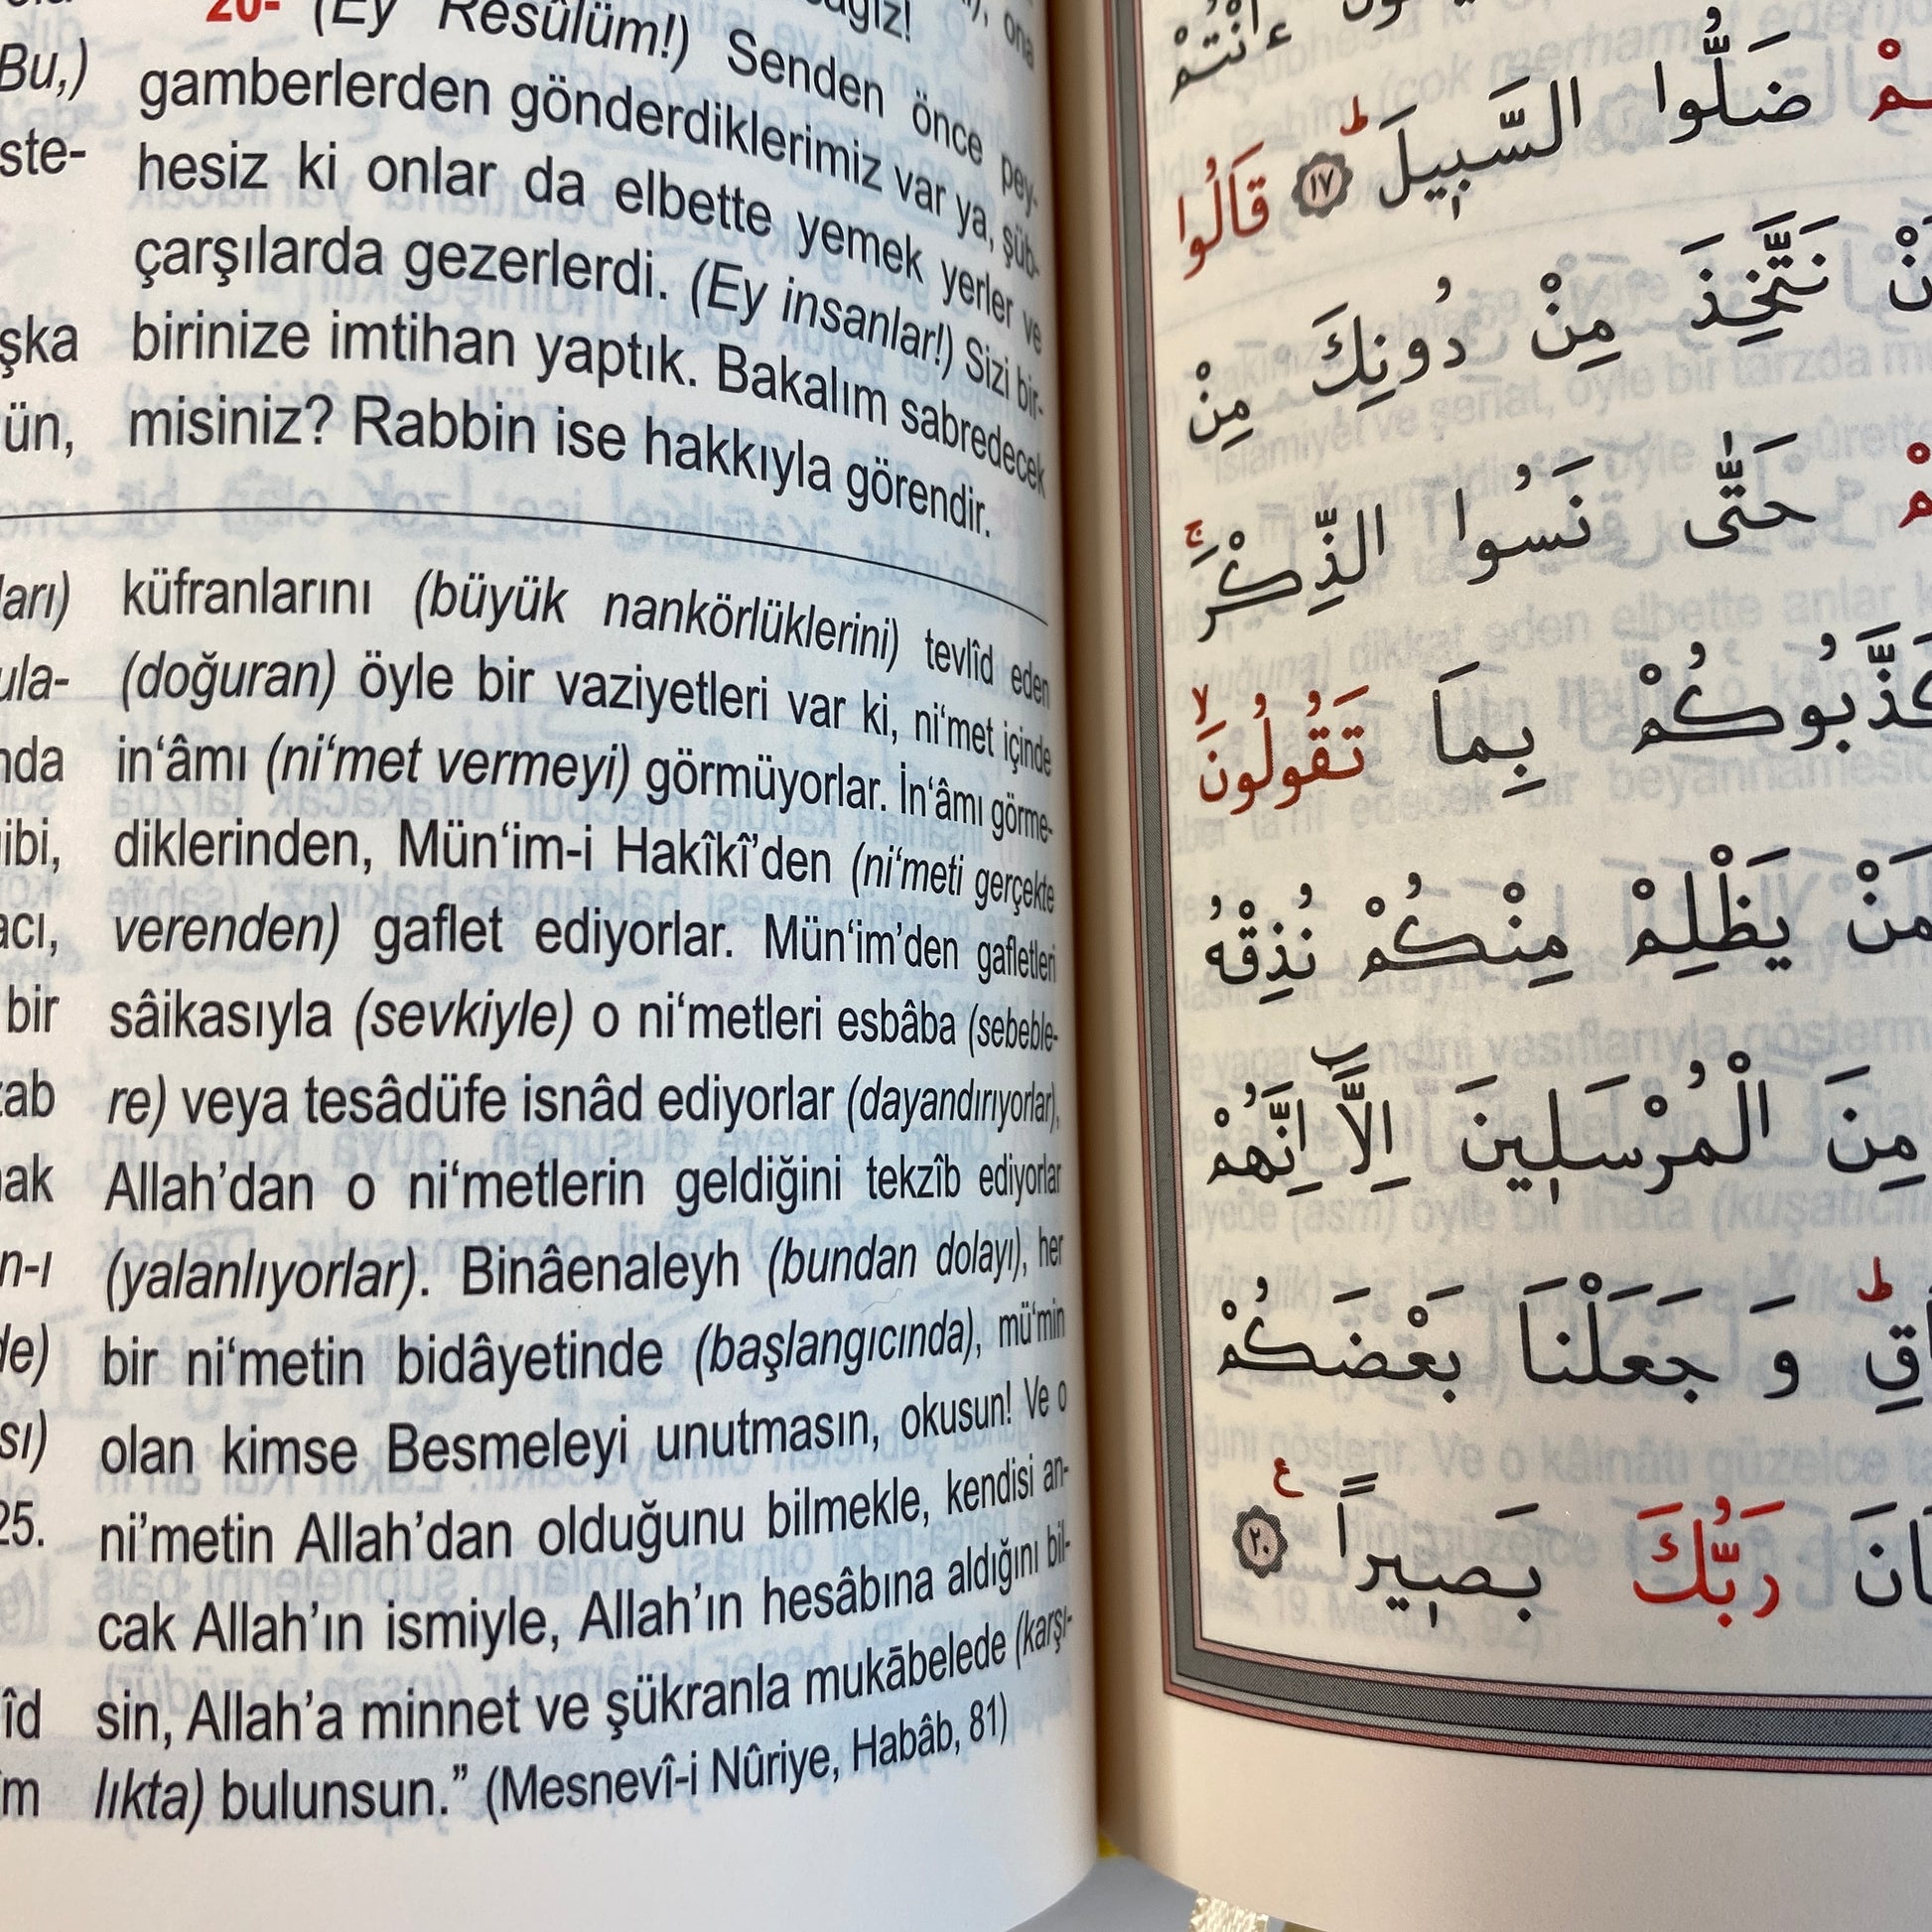 20- (Ey Resûlüm!) Senden önce pey-
gamberlerden gönderdiklerimiz var ya, şüb-
hesiz ki onlar da elbette yemek yerler ve
çarşılarda gezerlerdi. (Ey insanlar!) Sizi bir-
birinize imtihan yaptık. Bakalım sabredecek
misiniz? Rabbin ise hakkıyla görendir.
küfranlarını (büyük nankörlüklerini) tevlîd eden
(doğuran) öyle bir vaziyetleri var ki, ni‘met içinde
in‘âmı (ni‘met vermeyi) görmüyorlar. İn‘âmı görme-
diklerinden, Mün‘im-i Hakîkî’den (ni‘meti gerçekte
verenden) gaflet ediyorlar. Mün‘im’den gafletleri
sâikasıyla (sevkiyle) o ni‘metleri esbâba (sebeble-
re) veya tesâdüfe isnâd ediyorlar (dayandırıyorlar),
Allah’dan o ni‘metlerin geldiğini tekzîb ediyorlar
(yalanlıyorlar). Binâenaleyh (bundan dolayı), her
bir ni‘metin bidâyetinde (başlangıcında), mü’min
olan kimse Besmeleyi unutmasın, okusun! Ve o
ni’metin Allah’dan olduğunu bilmekle, kendisi an-
cak Allah’ın ismiyle, Allah’ın hesâbına aldığını bil-
sin, Allah’a minnet ve şükranla mukābelede (karşı-
lıkta) bulunsun.” (Mesnevî-i Nûriye, Habâb, 81)
Bu,)
ste-
şka
ün,
ları)
ula-
nda
ibi,
acı,
bir
zab
ak
n-ı
de)
sı)
25.
îd
m
ءَاَنْتُمْ
ضَلُّوا السَّبٖيلَۜ ﴿١٧﴾ قَالُوا
نَتَّخِذَ مِنْ دُونِكَ مِنْ
حَتّٰى نَسُوا الذِّكْرَۚ
كَذَّبُوكُمْ بِمَا تَقُولُونَۙ
مَنْ يَظْلِمْ مِنْكُمْ نُذِقْهُ
مِنَ الْمُرْسَلٖينَ اِلَّٓا اِنَّهُمْ
وَ جَعَلْنَا بَعْضَكُمْ
رَبُّكَ بَصٖيرًا ﴿٢٠﴾ ع